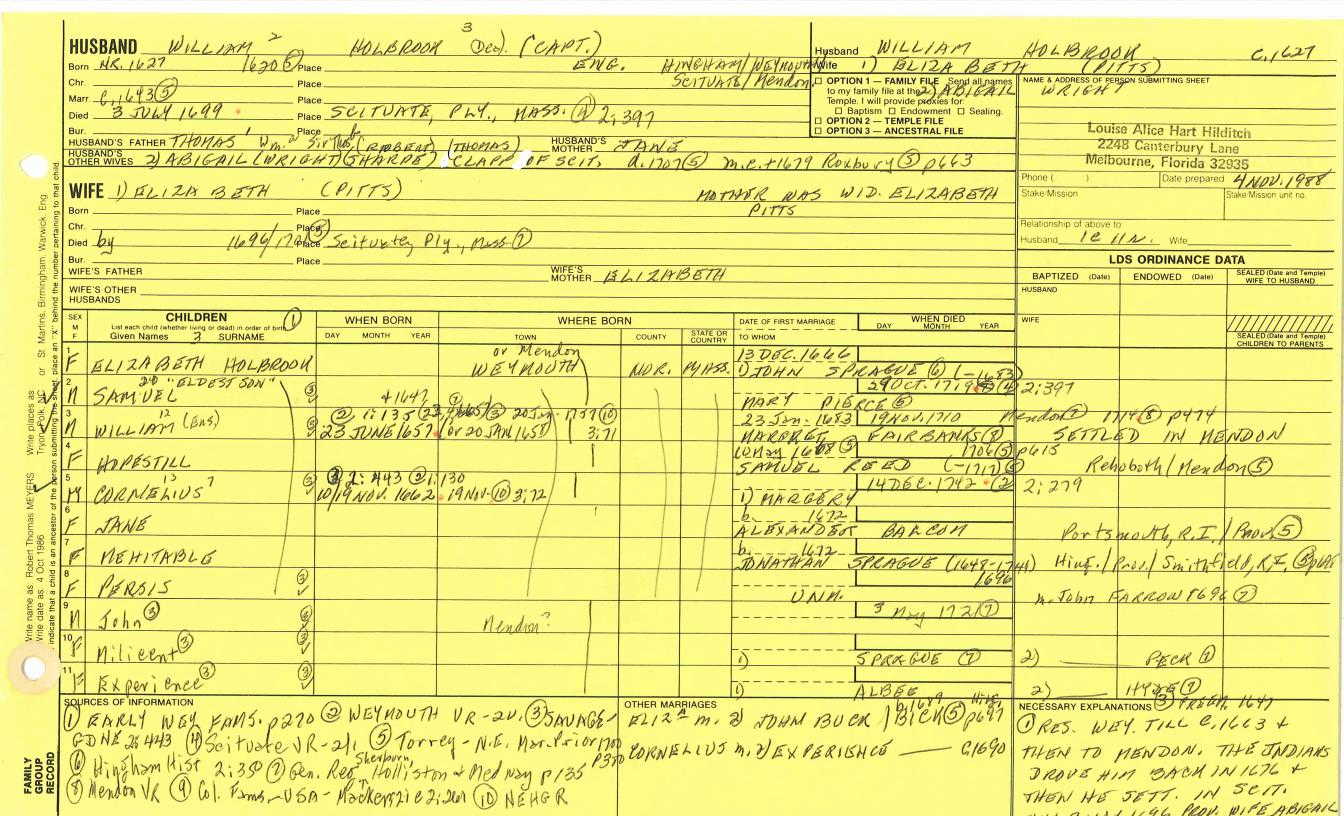 HUSBAND WILLIAM 2 HOLBROOK 3 Dea. (CAPT.)
Born NR. 1627 1620 (5) Place ENG. HINGHAM/WEYMOUTH
Chr. Place SCITUATE/Mendon
Marr c. 1643 (5) Place
Died 3 JULY 1699 Place SCITUATE, PLY., MASS. (4) 2:397
Bur. Place
HUSBAND'S FATHER THOMAS 1 Wm. (ROBERT) (THOMAS) HUSBAND'S MOTHER JANE
HUSBAND'S OTHER WIVES 2) ABIGAIL (WRIGHT) (SHARPE) CLAPP OF SCIT. d. 1707 (5) m. c. +1679 Roxbury (5) p663
WIFE 1) ELIZABETH (PITTS) MOTHER WAS WID. ELIZABETH
PITTS
Born Place
Chr. Place
Died by 1696/ Place Scituate, Ply., Mass (7)
Bur. Place
WIFE'S FATHER WIFE'S MOTHER ELIZABETH
WIFE'S OTHER HUSBANDS
Husband WILLIAM HOLBROOK C. 1627
Wife 1) ELIZABETH (PITTS)
2) ABIGAIL WRIGHT
OPTION 1 — FAMILY FILE Send all names
to my family file at the
Temple. I will provide proxies for:
Baptism Endowment Sealing.
OPTION 2 — TEMPLE FILE
OPTION 3 — ANCESTRAL FILE
NAME & ADDRESS OF PERSON SUBMITTING SHEET
Louise Alice Hart Hilditch
2248 Canterbury Lane
Melbourne, Florida 32935
Phone ( ) Date prepared 4 NOV. 1988
Stake/Mission Stake/Mission unit no.
Relationship of above to
Husband Wife
LDS ORDINANCE DATA
BAPTIZED (Date) ENDOWED (Date) SEALED (Date and Temple) WIFE TO HUSBAND
HUSBAND
WIFE
SEALED (Date and Temple) CHILDREN TO PARENTS
SEX M F
CHILDREN (1)
List each child (whether living or dead) in order of birth
Given Names 3 SURNAME
WHEN BORN
DAY MONTH YEAR
WHERE BORN
TOWN COUNTY STATE OR COUNTRY
DATE OF FIRST MARRIAGE
TO WHOM
WHEN DIED
DAY MONTH YEAR
1 F ELIZABETH HOLBROOK or Mendon WEYMOUTH NOR. MASS. 13 DEC. 1666
1) JOHN SPRAGUE (6) (-1683)
2 M SAMUEL "ELDEST SON" (3) +1647 29 OCT. 1712:397
MARY PIERCE (5)
3 M WILLIAM 12 (Ens) 23 JUNE 1657 (or 20 JAN 1658) 3:71 23 Jan. 1683 19 NOV. 1710 Mendon 1714 (8) p474
MARGRET FAIRBANKS (8) SETTLED IN MENDON
4 F HOPESTILL 1706 (5) p615
SAMUEL REED (-1717) Rehoboth/Mendon (5)
5 M CORNELIUS 13 (3) 2:443 (2) 1:130 14 DEC. 1742 (2) 2:279
10/19 NOV. 1662 19 Nov. (10) 3:72 1) MARGERY
6 F JANE b. 1672
ALEXANDER BALCOM Portsmouth, R.I./Prov. (5)
7 F MEHITABLE b. 1672
JONATHAN SPRAGUE (1648-1741) Hing./Prov./Smithfield, R.I.
8 F PERSIS (3) 1696
UNM. m. John FARROW 1696 (7)
9 M John (3) Mendon? 3 May 1721 (7)
10 F Milicent (3)
1) SPRAGUE (7) 2) PECK (1)
11 F Experience (3)
1) ALBEE 2) HYDE (7)
SOURCES OF INFORMATION
(1) EARLY WEY FAMS. p270 (2) WEYMOUTH VR-2V. (3) SAVAGE-
GDNE 2:443 (4) Scituate VR-2V, (5) Torrey-N.E. Mar. Prior 1700
(6) Hingham Hist 2:350 (7) Gen. Reg. Sherburn, Holliston & Medway p135
(8) Mendon VR (9) Col. Fams-USA-Mackenzie 2:261 (10) NEHGR
OTHER MARRIAGES
ELIZth m. 2) JOHN BUCK / Bick (5) p697
CORNELIUS m. 2) EXPERIENCE C1690
NECESSARY EXPLANATIONS (3) FREEM. 1647
(1) RES. WEY. TILL C. 1663 &
THEN TO MENDON. THE INDIANS
DROVE HIM BACK IN 1676 &
THEN HE SETT. IN SCIT.
WIFE ABIGAIL
FAMILY GROUP RECORD
Write name as: Robert Thomas MEYERS
Write date as: 4 Oct 1986
Write places as: Tryon, Polk, NC or St. Martins, Birmingham, Warwick, Eng.